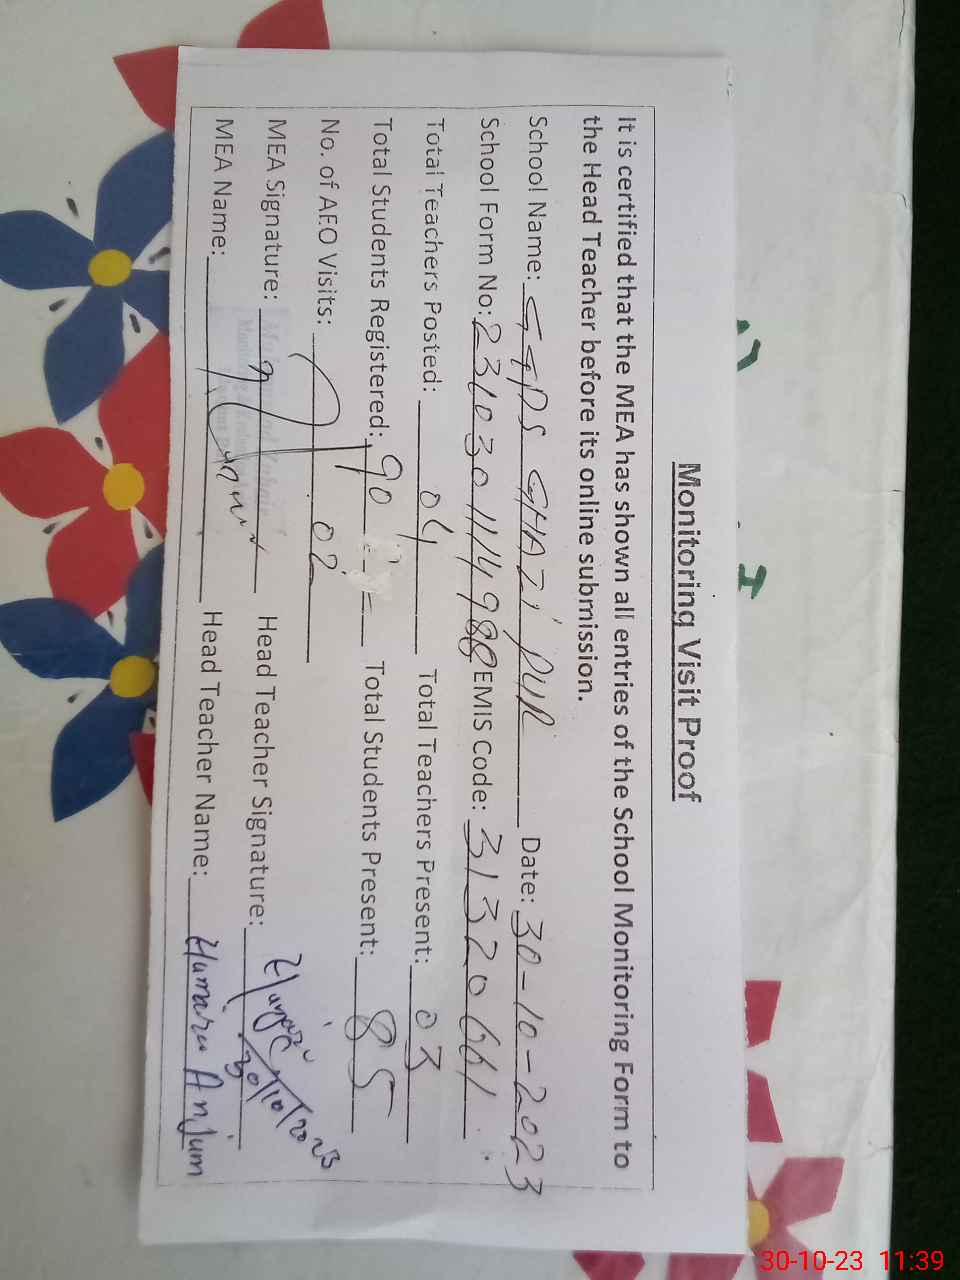 Monitoring Visit Proof
It is certified that the MEA has shown all entries of the School Monitoring Form to
the Head Teacher before its online submission.
School Name: GGPS GHAZI PUR Date: 30-10-2023
School Form No: EMIS Code: 31320661
Total Teachers Posted: 04 Total Teachers Present: 03
Total Students Registered: 90 Total Students Present: 85
No. of AEO Visits: 02
MEA Signature: Head Teacher Signature: 30/10/2023
MEA Name: Head Teacher Name: Humaira Anjum
30-10-23 11:39